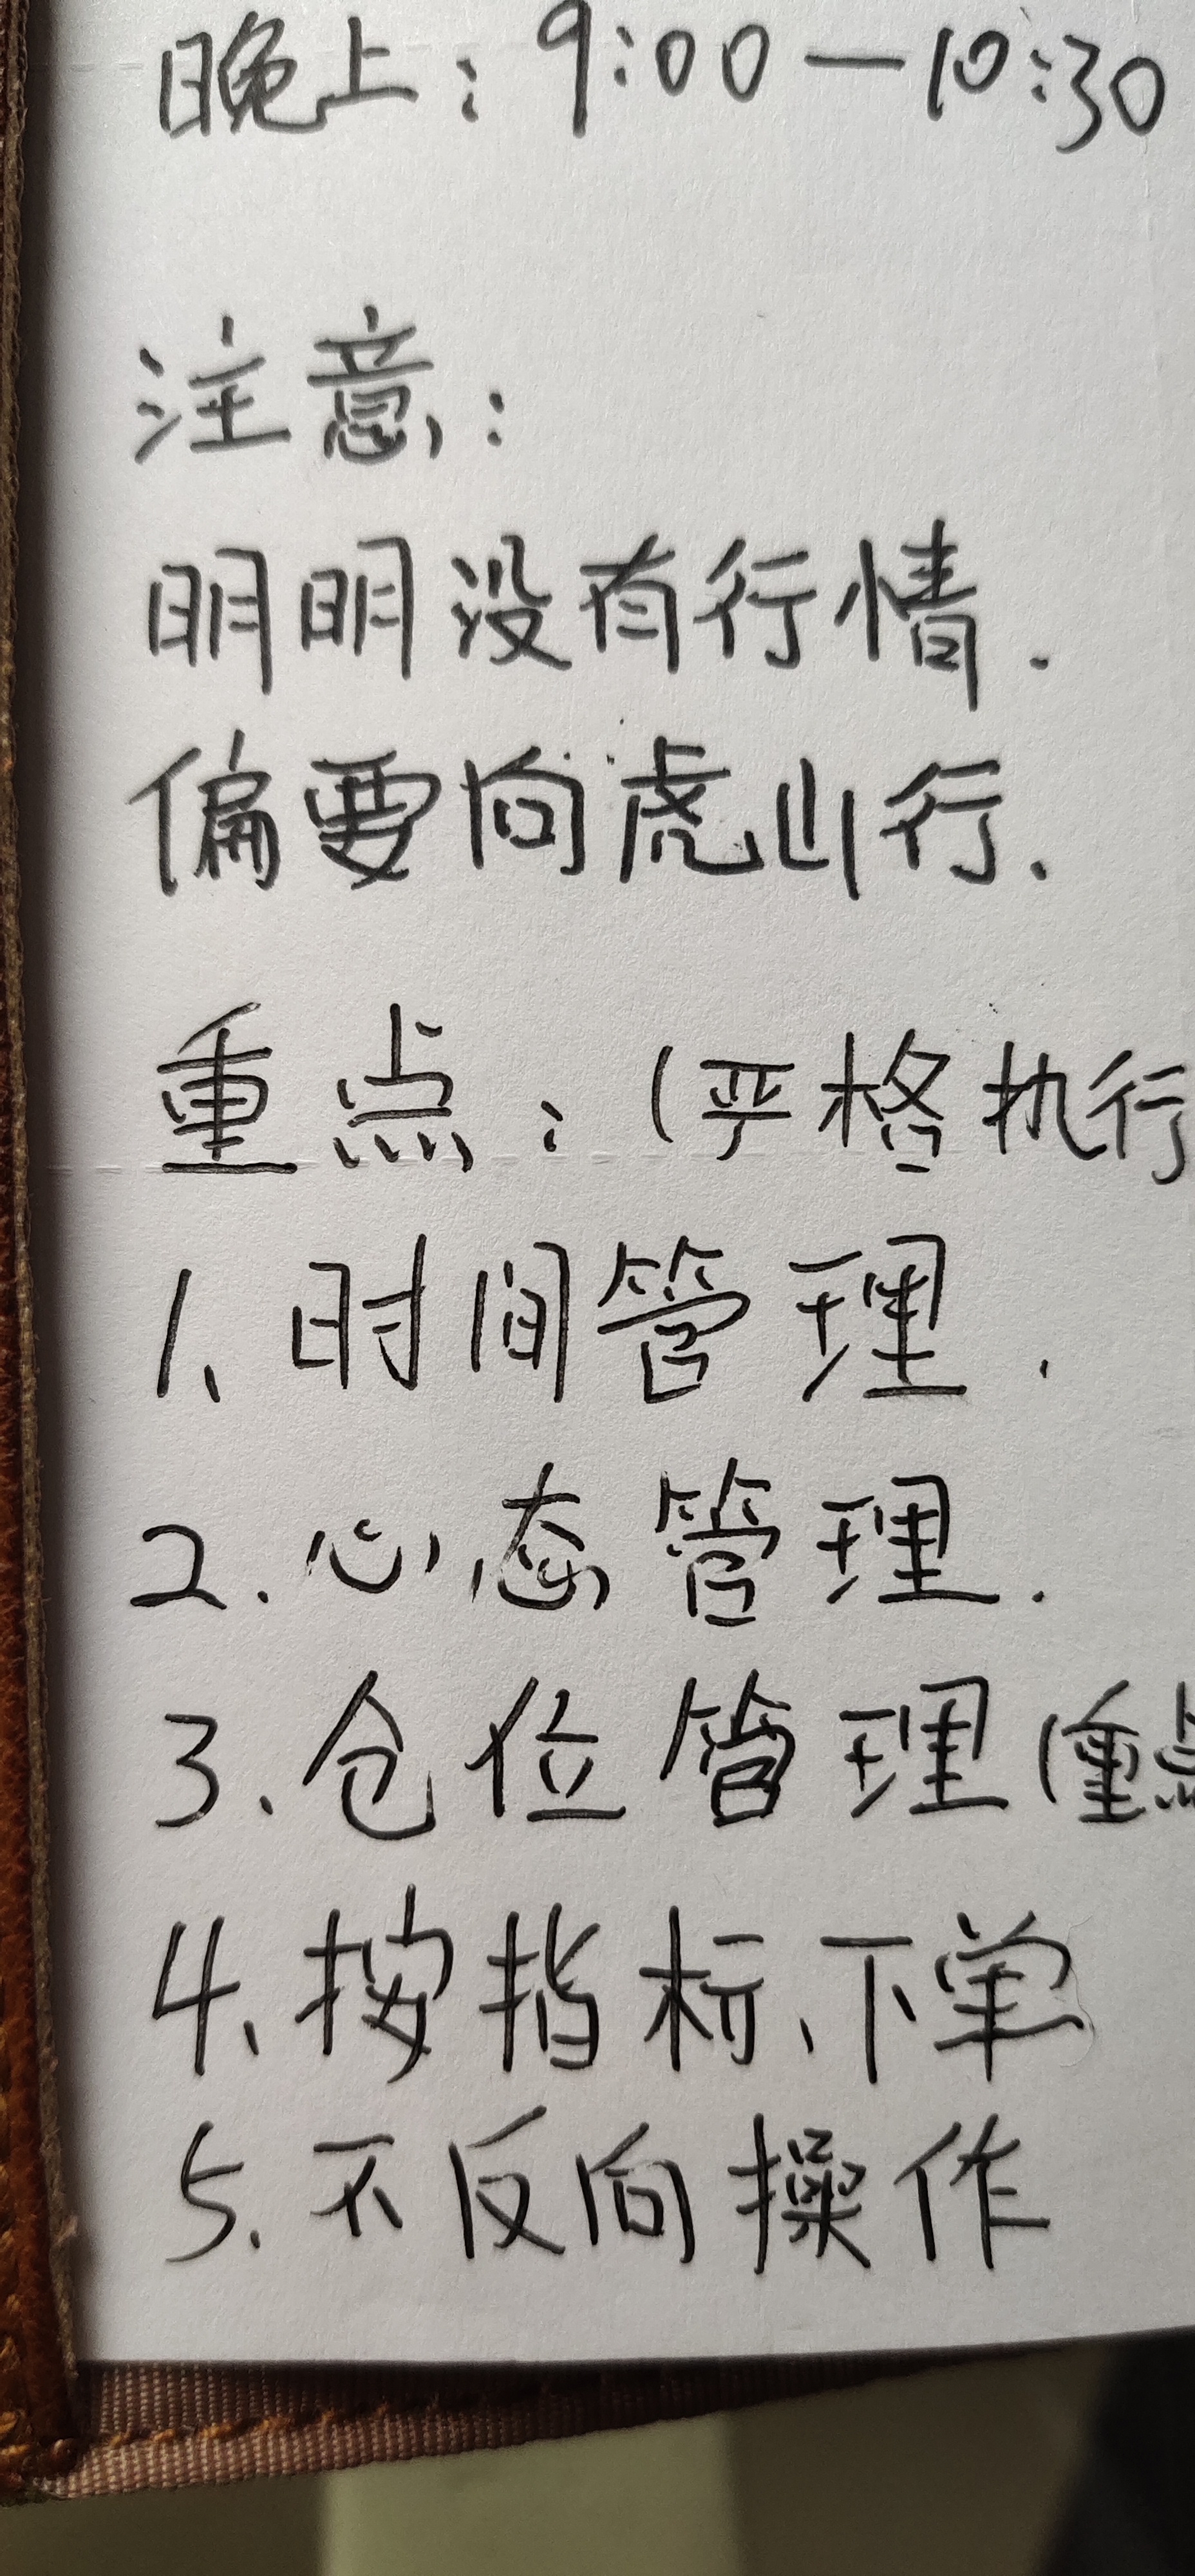 晚上：9:00—10:30
注意：
明明没有行情.
偏要向虎山行.
重点：(严格执行
1、时间管理.
2.心态管理.
3.仓位管理(重点
4、按指标、下单
5.不反向操作